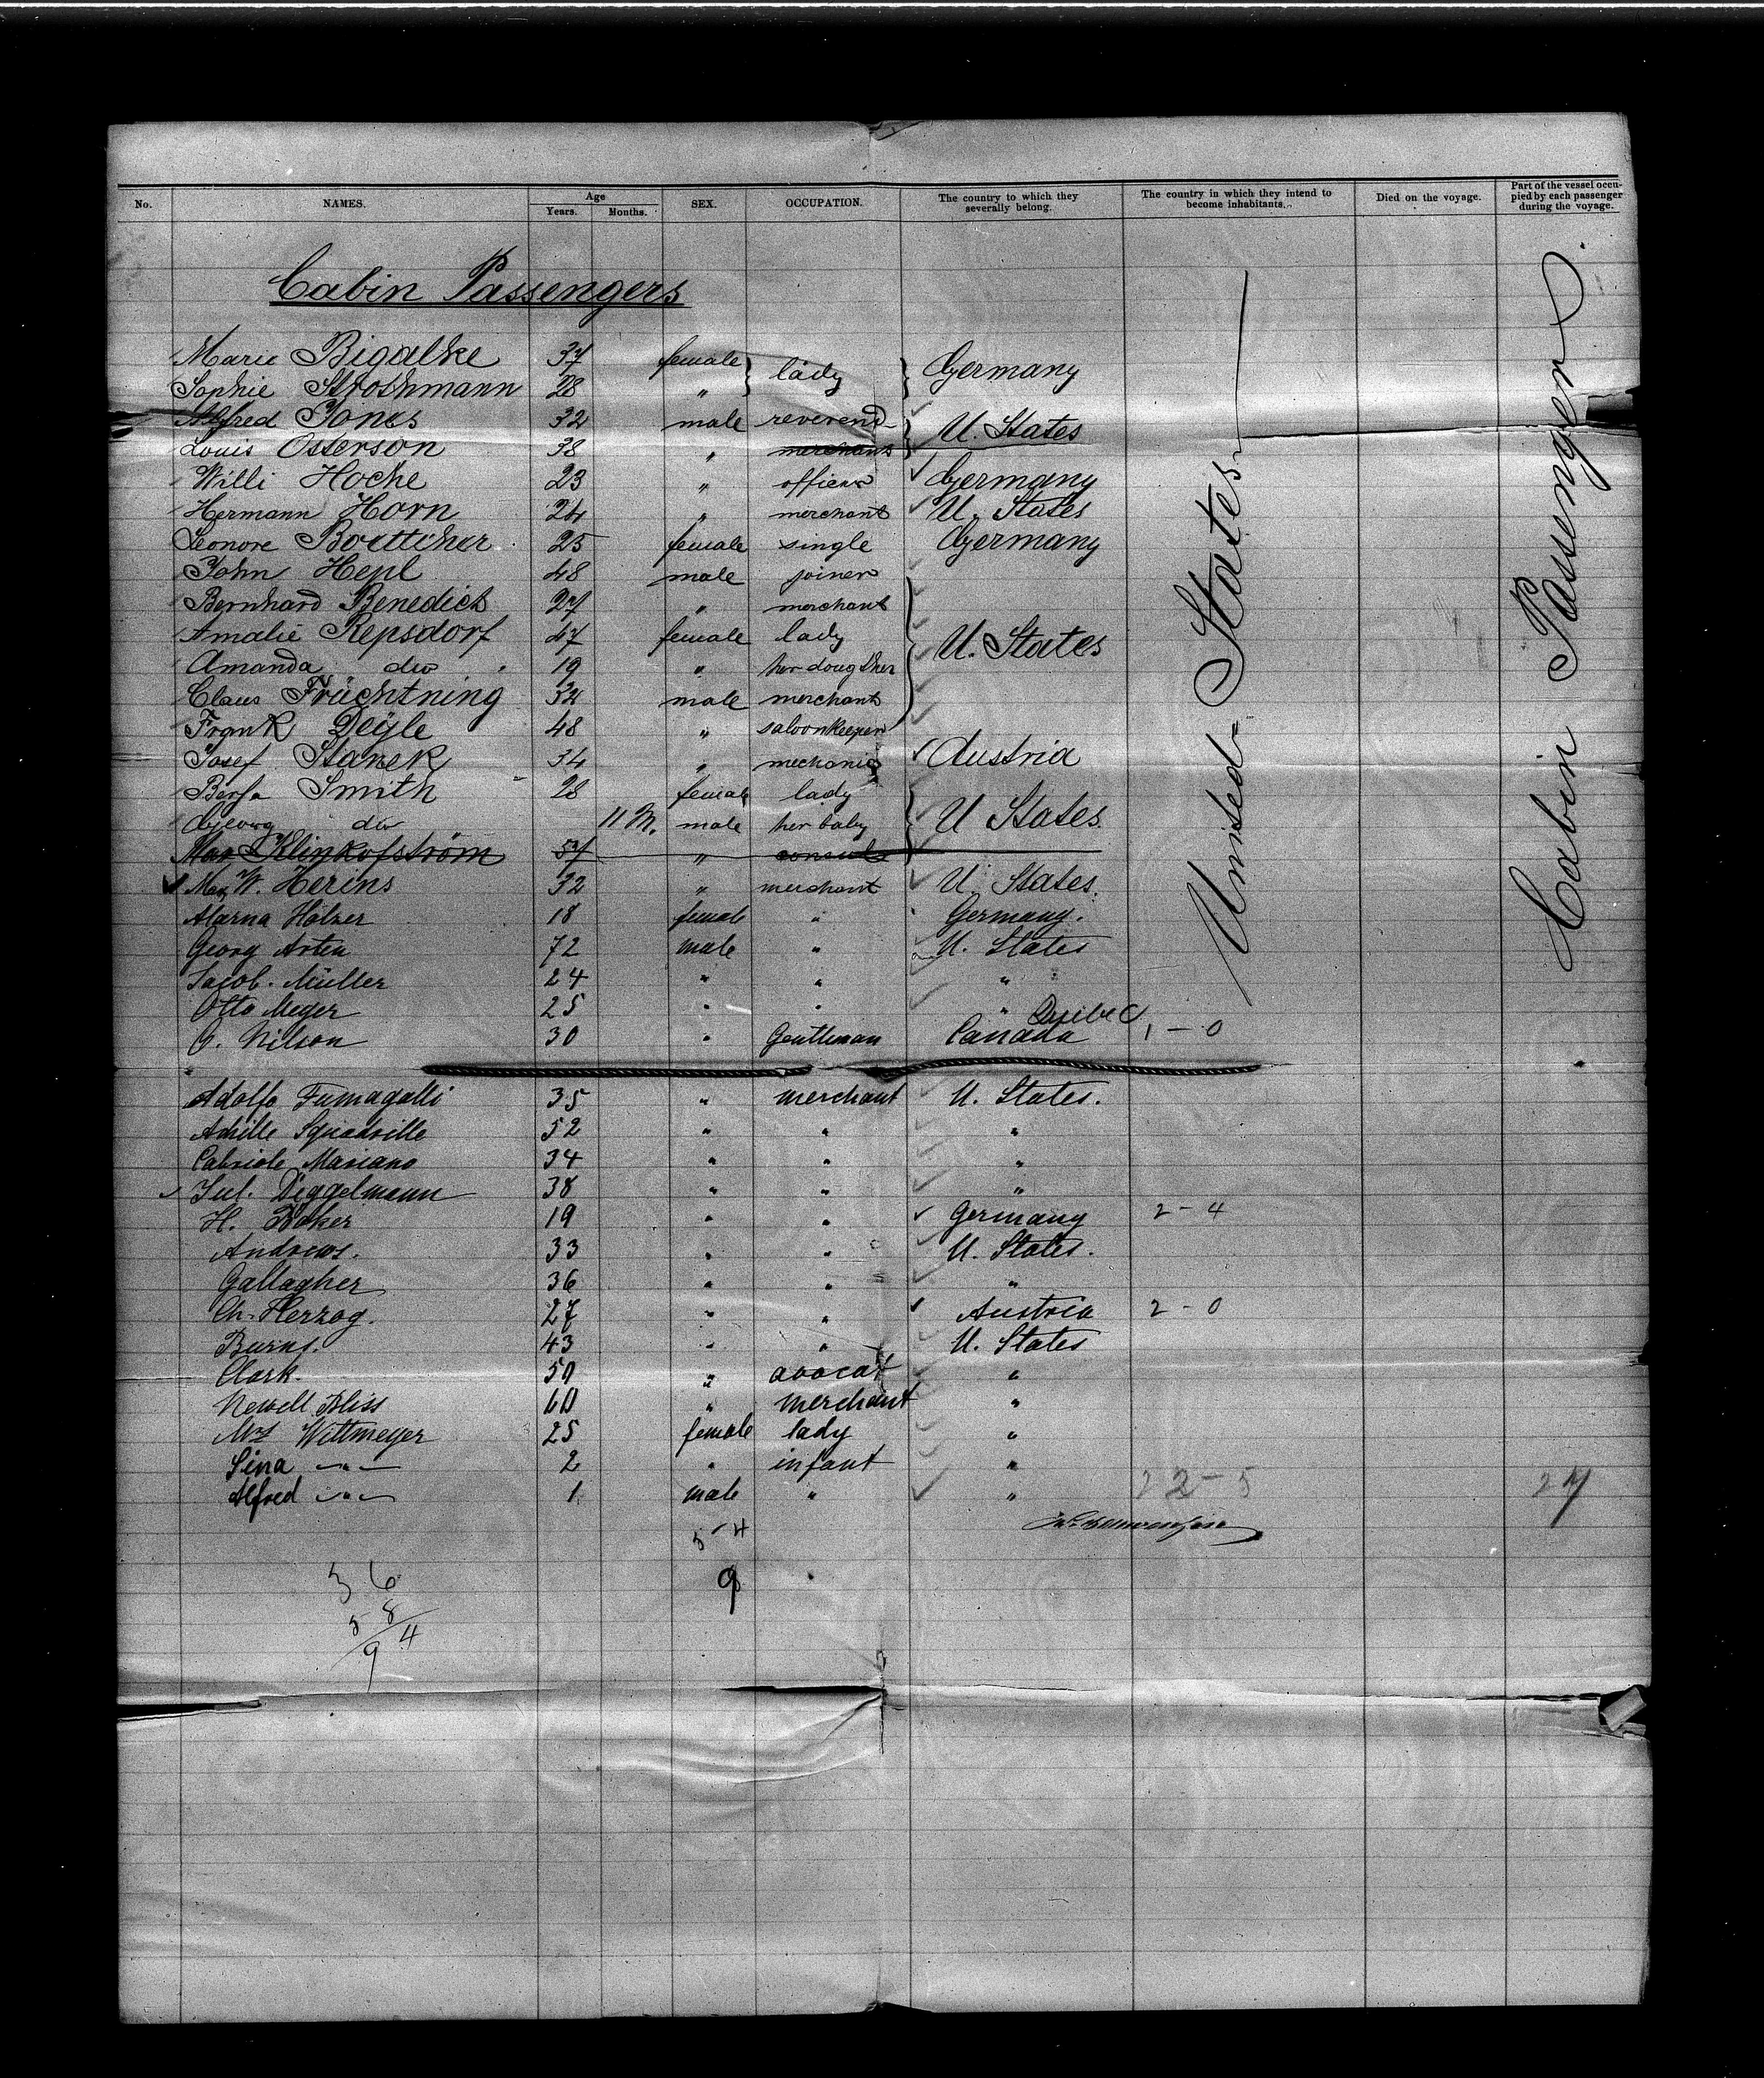 No. NAMES. Age Years. Months. SEX. OCCUPATION. The country to which they severally belong. The country in which they intend to become inhabitants. Died on the voyage. Part of the vessel occupied by each passenger during the voyage.
Cabin Passengers
Marie Bigalke 37 female lady Germany
Sophie Strothmann 28 "
Alfred Jones 32 male reverend U. States
Louis Osterson 38 " merchant
Willi Hoche 23 " officer Germany
Hermann Horn 24 " merchant U. States
Leonore Boettcher 25 female single Germany
John Hepl 48 male joiner
Bernhard Benedict 27 " merchant
Amalie Repsdorf 47 female lady U. States
Amanda do 19 " her doughther
Claus Früchtning 32 male merchant
Frank Deyle 48 " saloonkeeper
Josef Stanek 34 " mechanic Austria
Berta Smith 28 female lady U States.
Georg do 11 M. male her baby
Max Klinkofström 57 " consul
Max W. Herins 32 " merchant U. States.
Holzer 18 female " Germany.
Georg Arten 72 male " U. States
Jacob. Müller 24 " " "
Otto Meyer 25 " " "
Quebec
O. Nilson 30 " Gentleman Canada 1 - 0
United States
Cabin Passenger
Adolfo Fumagalli 35 " merchant U. States.
Achille 52 " " "
Gabriele Mariano 34 " " "
Jul. Deggelmann 38 " " "
H. 19 " " Germany 2 - 4
Andrews. 33 " " U. States.
Gallagher 36 " " "
Ch. Herzog. 27 " " Austria 2 - 0
Burns. 43 " " U. States
Clark. 50 " avocat "
Newell Bliss 60 " merchant "
Mrs Wittmeyer 25 female lady "
Lina -"- 2 " infant "
Alfred -"- 1 male " " 22-5 27
5-4
36 9
58
9 4